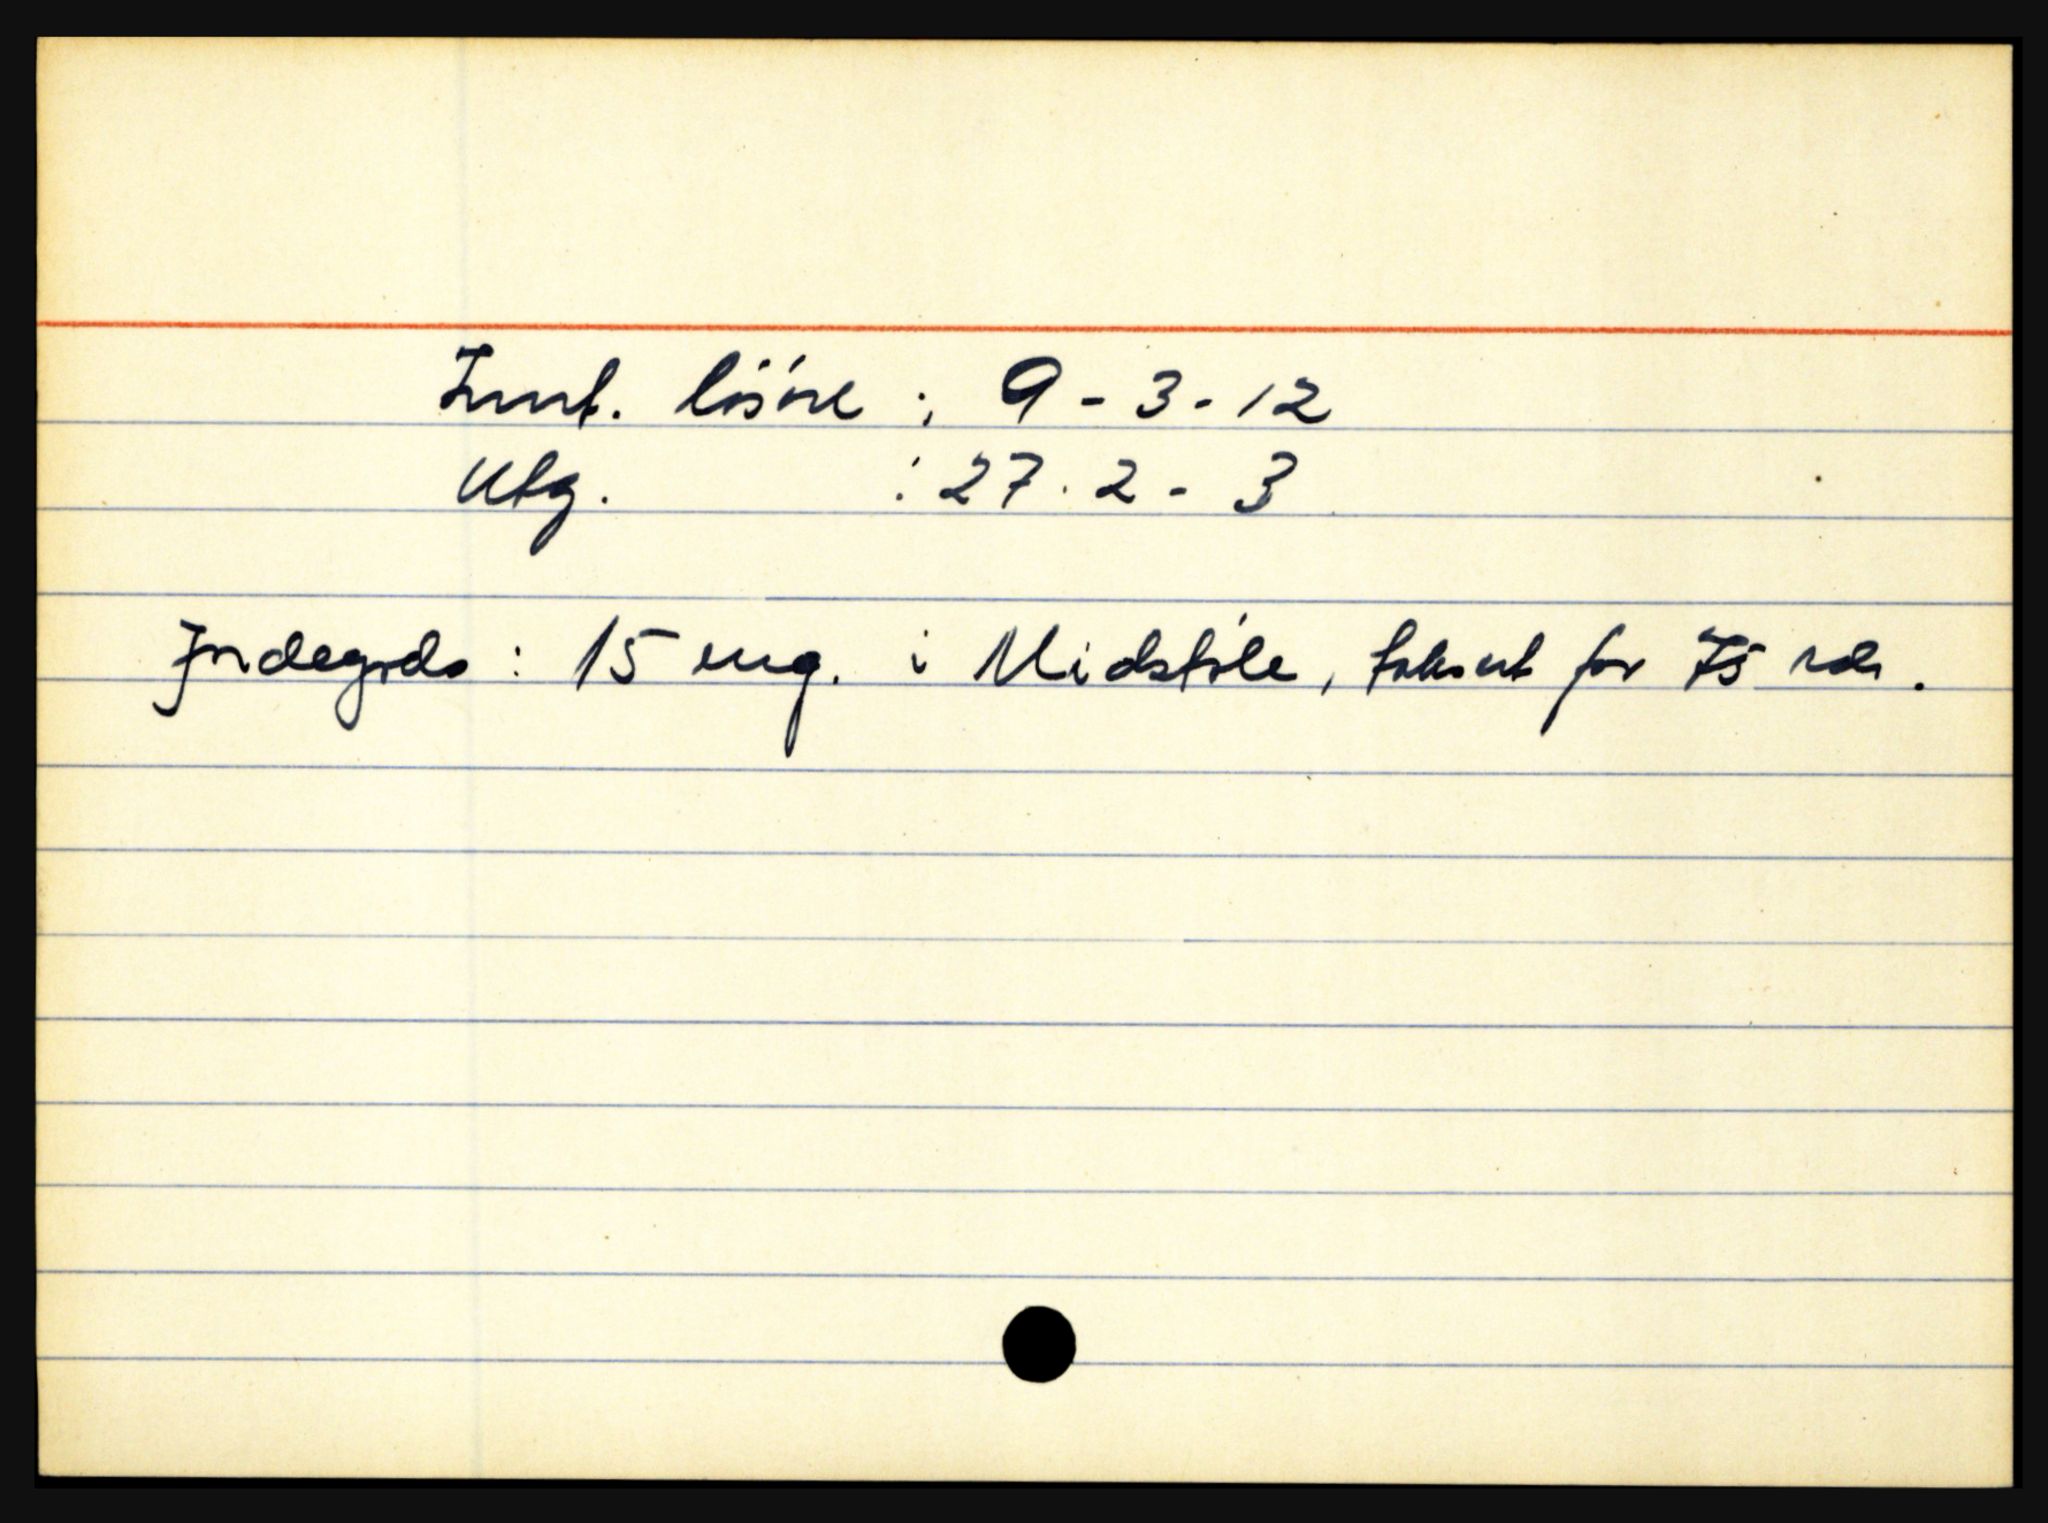 Innt. lösöre : 9 - 3 - 12
Utg. : 27 . 2 - 3
Jordegods : 15 eng. i Midstöle, taksert for 75 rdr.